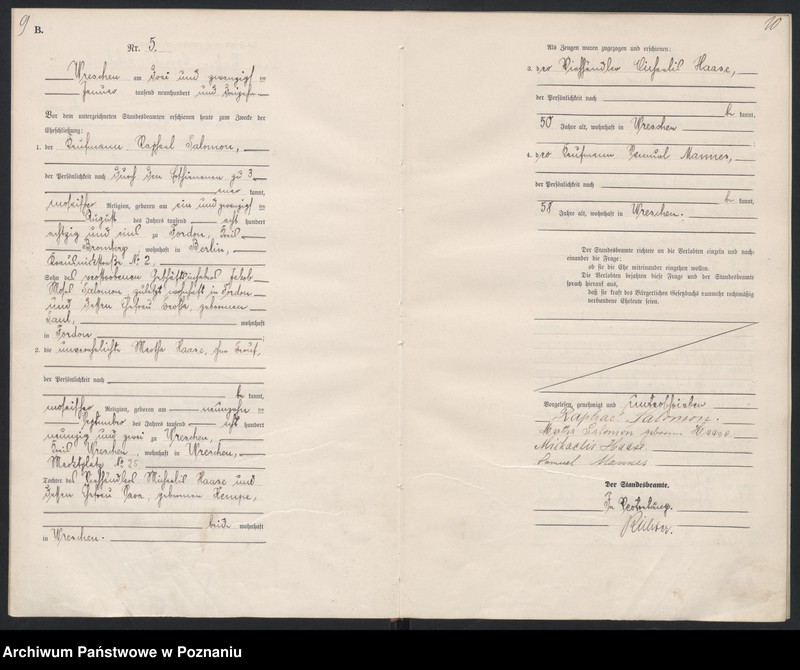 9
B.
Nr. 5.
Wreschen am drei und zwanzigsten
Januar tausend neunhundert und dreizehn
Vor dem unterzeichneten Standesbeamten erschienen heute zum Zwecke der
Eheschließung:
1. der Kaufmann Raphael Salomon,
der Persönlichkeit nach durch den Erschienenen zu 3
kannt,
mosaischer Religion, geboren am ein und zwanzigsten
August des Jahres tausend acht hundert
achtzig und eins zu Fordon, Kreis
Bromberg, wohnhaft in Berlin,
Krausnickstraße No 2,
Sohn des verstorbenen
Moses Salomon, zuletzt wohnhaft in Fordon
und dessen Ehefrau geborenen
wohnhaft
in Fordon;
2. die unverehelichte Martha Haase,
der Persönlichkeit nach
be kannt,
mosaischer Religion, geboren am neunzehnten
September des Jahres tausend acht hundert
neunzig und zwei zu Wreschen,
Kreis Wreschen, wohnhaft in Wreschen,
Marktplatz No 25
Tochter des Viehhändlers Michaelis Haase und
dessen Ehefrau geborenen Kempe,
beide wohnhaft
in Wreschen.
10
Als Zeugen waren zugezogen und erschienen:
3. der Viehhändler Michaelis Haase,
der Persönlichkeit nach
be kannt,
50 Jahre alt, wohnhaft in Wreschen
4. der Kaufmann Samuel Mannes,
der Persönlichkeit nach
be kannt,
58 Jahre alt, wohnhaft in Wreschen.
Der Standesbeamte richtete an die Verlobten einzeln und nach-
einander die Frage:
ob sie die Ehe miteinander eingehen wollen.
Die Verlobten bejahten diese Frage und der Standesbeamte
sprach hierauf aus,
daß sie kraft des Bürgerlichen Gesetzbuchs nunmehr rechtmäßig
verbundene Eheleute seien.
Vorgelesen, genehmigt und unterschrieben
Raphael Salomon.
Martha Salomon geborene Haase
Michaelis Haase.
Samuel Mannes
Der Standesbeamte.
In Vertretung.
Archiwum Państwowe w Poznaniu